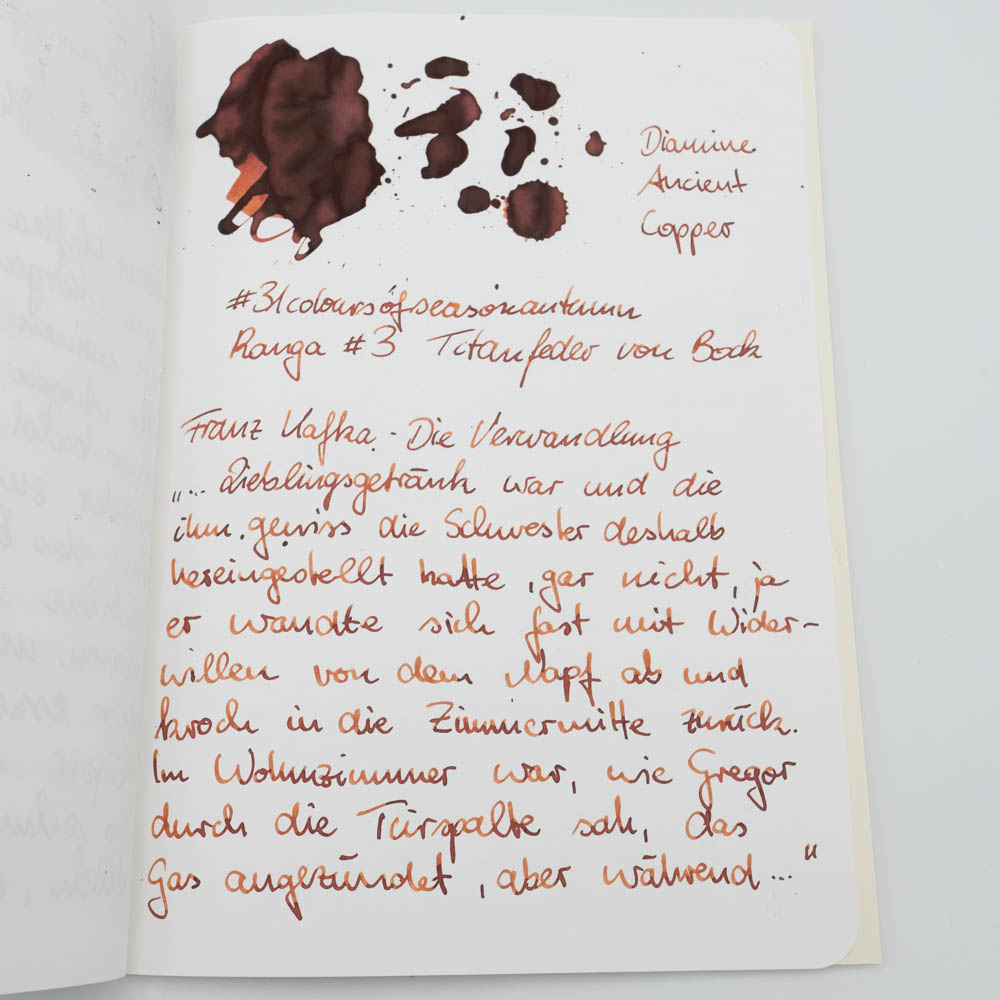 Diamine
Ancient
Copper
#31coloursofseasonautumn
Ranga #3 Titanfeder von Bock
Franz Kafka - Die Verwandlung
„... Lieblingsgetränk war und die
ihm gewiss die Schwester deshalb
hereingestellt hatte, gar nicht, ja
er wandte sich fast mit Wider-
willen von dem Napf ab und
kroch in die Zimmermitte zurück.
Im Wohnzimmer war, wie Gregor
durch die Türspalte sah, das
Gas angezündet, aber während..."